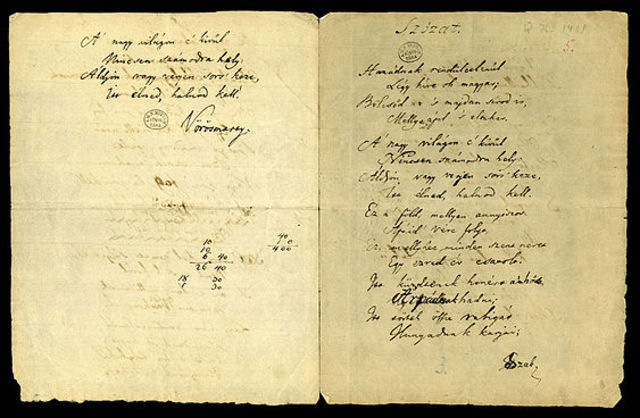 A' nagy világon e' kivül
Nincsen számodra hely:
Áldjon vagy verjen sors keze,
Itt élned, halnod kell.
Vörösmarty
10
10
6 40
26 40
18 30
1 30
40
10
400
Szózat.
5.
Hazádnak rendületlenül
Légy hive oh magyar;
Bölcsőd ez 's majdan sirod is,
Melly ápol 's eltakar.
A' nagy világon e' kivül
Nincsen számodra hely:
Áldjon vagy verjen sors keze,
Itt élned, halnod kell.
Ez a' föld, mellyen annyiszor
Apáid vére folyt,
Ez, mellyhez minden szent nevet
Egy ezred év csatolt.
Itt küzdtenek honért a' hős
Árpádnak hadai;
Itt törtek össze rabigát
Hunyadnak karjai;